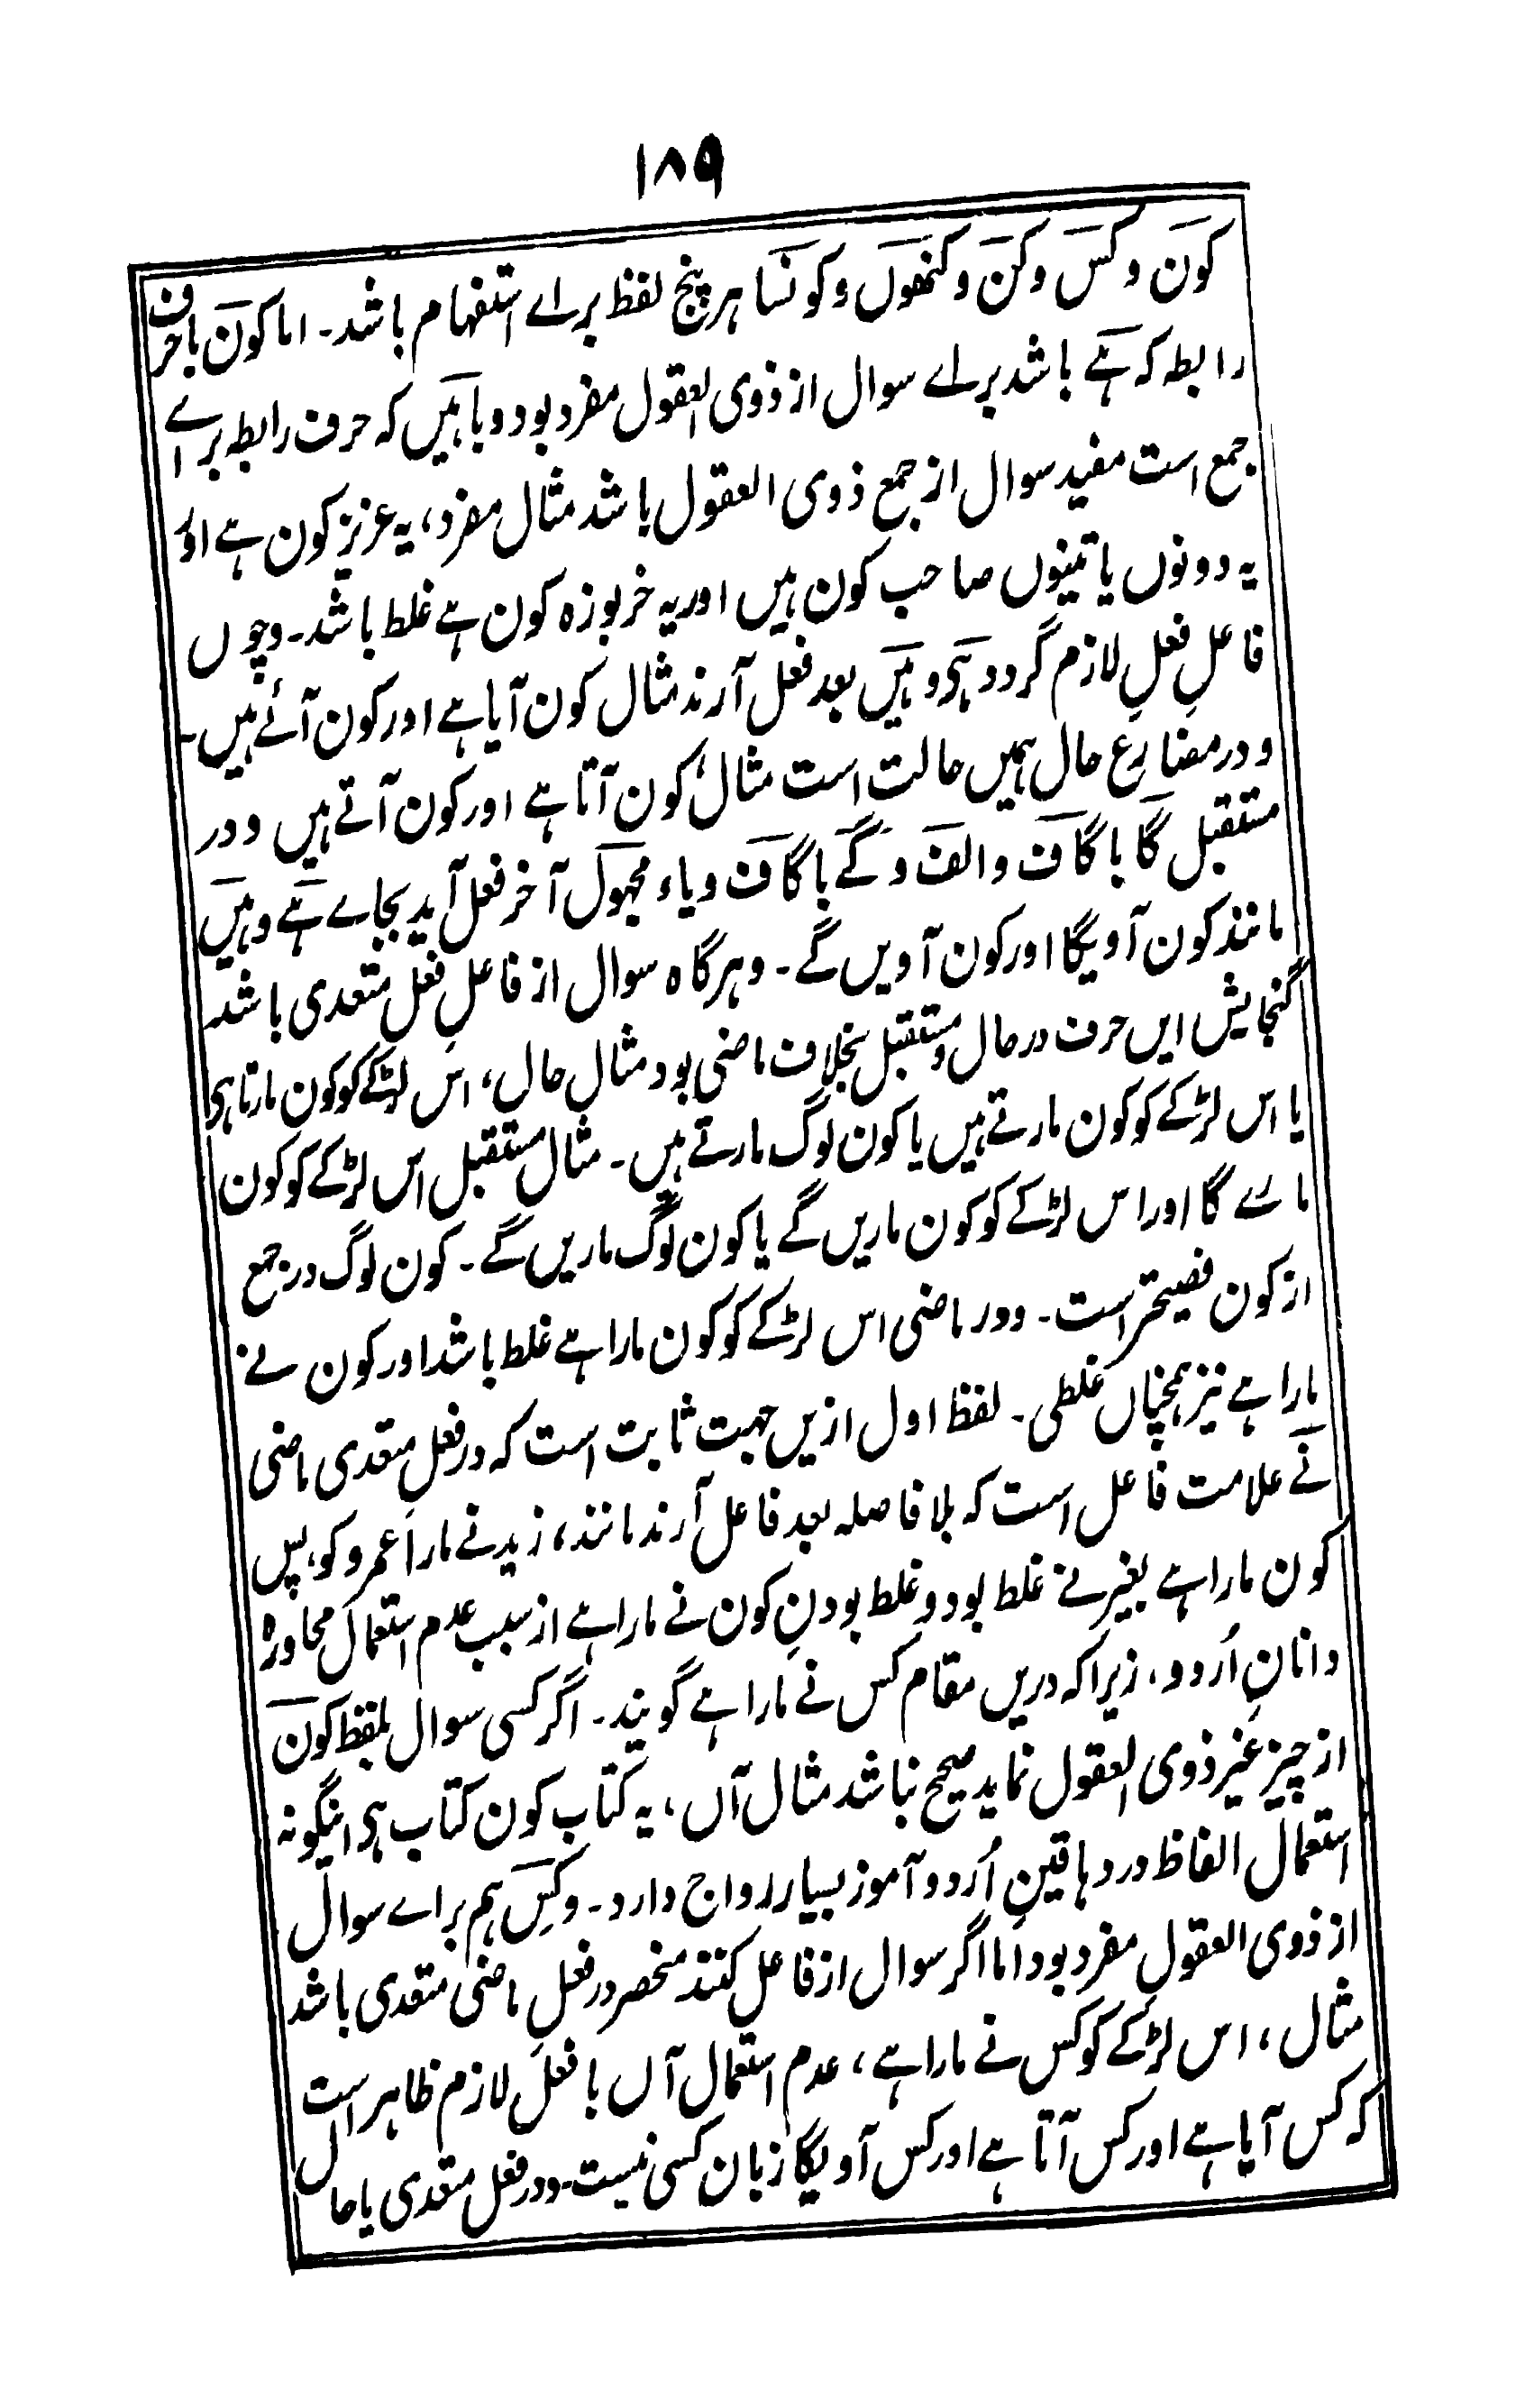 ۱۸۹
کون و کس و کن و کنھوں و کونسا ہر پنج لفظ براے استفہام باشد۔ اما کون باحرف
رابطہ کہ ہے باشد براے سوال از ذوی العقول مفرد بود و با ہیں کہ حرف رابطہ براے
جمع است مفید سوال از جمع ذوی العقول باشد مثال مفرد، یہ عزیز کون ہے اور
یہ دونوں یا تینوں صاحب کون ہیں اور یہ خربوزہ کون ہے غلط باشد۔ و چوں
فاعلِ فعلِ لازم گردد ہی و ہیں بعد فعل آرند مثال کون آیا ہے اور کون آئے ہیں۔
و در مضارع حال ہمیں حالت است مثال کون آتا ہے اور کون آتے ہیں و در
مستقبل گا با گاف و الف و گے با گاف و یاء مجہول آخر فعل آید بجاے ہے و ہیں
مانند کون آویگا اور کون آویں گے۔ و ہرگاہ سوال از فاعلِ فعلِ متعدی باشد
گنجایش ایں حرف در حال و مستقبل بخلاف ماضی بود مثال حال، اس لڑکے کو کون مارتا ہی
یا اس لڑکے کو کون مارتے ہیں یا کون لوگ مارتے ہیں۔ مثال مستقبل اس لڑکے کو کون
مارے گا اور اس لڑکے کو کون ماریں گے یا کون لوگ ماریں گے۔ کون لوگ در جمع
از کون فصیحتر است۔ و در ماضی اس لڑکے کو کون مارا ہے غلط باشد اور کون نے
مارا ہے نیز ہمچناں غلطی۔ لفظ اول ازیں جہت ثابت است کہ در فعل متعدی ماضی
نے علامت فاعل است کہ بلا فاصلہ بعد فاعل آرند مانند، زید نے مارا عمرو کو، پس
کون مارا ہے بغیر نے غلط بود و غلط بودنِ کون نے مارا ہے از سبب عدم استعمال محاورہ
دانانِ اُردو، زیرا کہ دریں مقام کس نے مارا ہے گویند۔ اگر کسی سوال بلفظ کون
از چیز غیر ذوی العقول نماید صحیح نباشد مثال آں، یہ کتاب کون کتاب ہی اینگونہ
استعمال الفاظ در دہاقینِ اُردو آموز بسیار رواج دارد۔ و کس ہم براے سوال
از ذوی العقول مفرد بود اما اگر سوال از فاعل کنند منحصر در فعلِ ماضی متعدی باشد
مثال، اس لڑکے کو کس نے مارا ہے، عدم استعمال آں با فعل لازم ظاہر است
کہ کس آیا ہے اور کس آتا ہے اور کس آویگا زبان کسی نیست۔ و در فعل متعدی یا حال